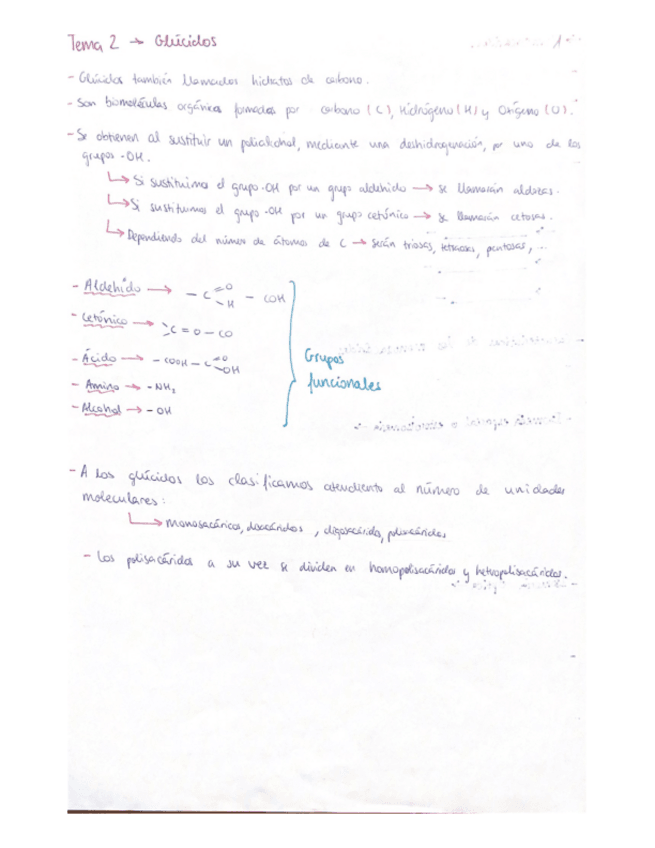 Tema 2 → Glúcidos
- Glúcidos también llamados hidratos de carbono.
- Son biomoléculas orgánicas formadas por carbono (C), Hidrógeno (H) y Oxígeno (O).
- Se obtienen al sustituir un polialcohol, mediante una deshidrogenación, por uno de los
grupos -OH.
↳ Si sustituimos el grupo -OH por un grupo aldehido → se llamarán aldosas.
↳ Si sustituimos el grupo -OH por un grupo cetónico → se llamarán cetosas.
↳ Dependiendo del número de átomos de C → serán triosas, tetrosas, pentosas, ...
- Aldehído → - C =O -H - COH
- Cetónico → >C = O - CO
- Ácido → - COOH - C =O -OH
- Amino → - NH₂
- Alcohol → - OH
Grupos
funcionales
- A los glúcidos los clasificamos atendiento al número de unidades
moleculares:
↳ monosacáricos, disacáridos, oligosacárido, polisacáridos
- Los polisacáridos a su vez se dividen en homopolisacáridos y hetropolisacáridos.